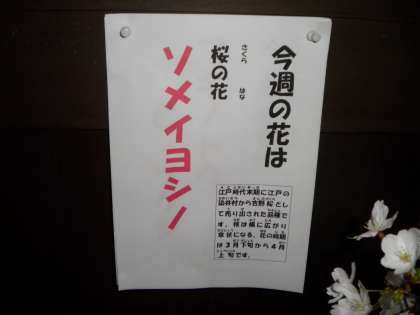 今週の花は
さくら はな
桜の花
ソメイヨシノ
江戸時代末期に江戸の
染井村から吉野桜とし
て売り出された品種で
す。枝は横に広がり
傘状になる。花の時期
は3月下旬から4月
上旬です。